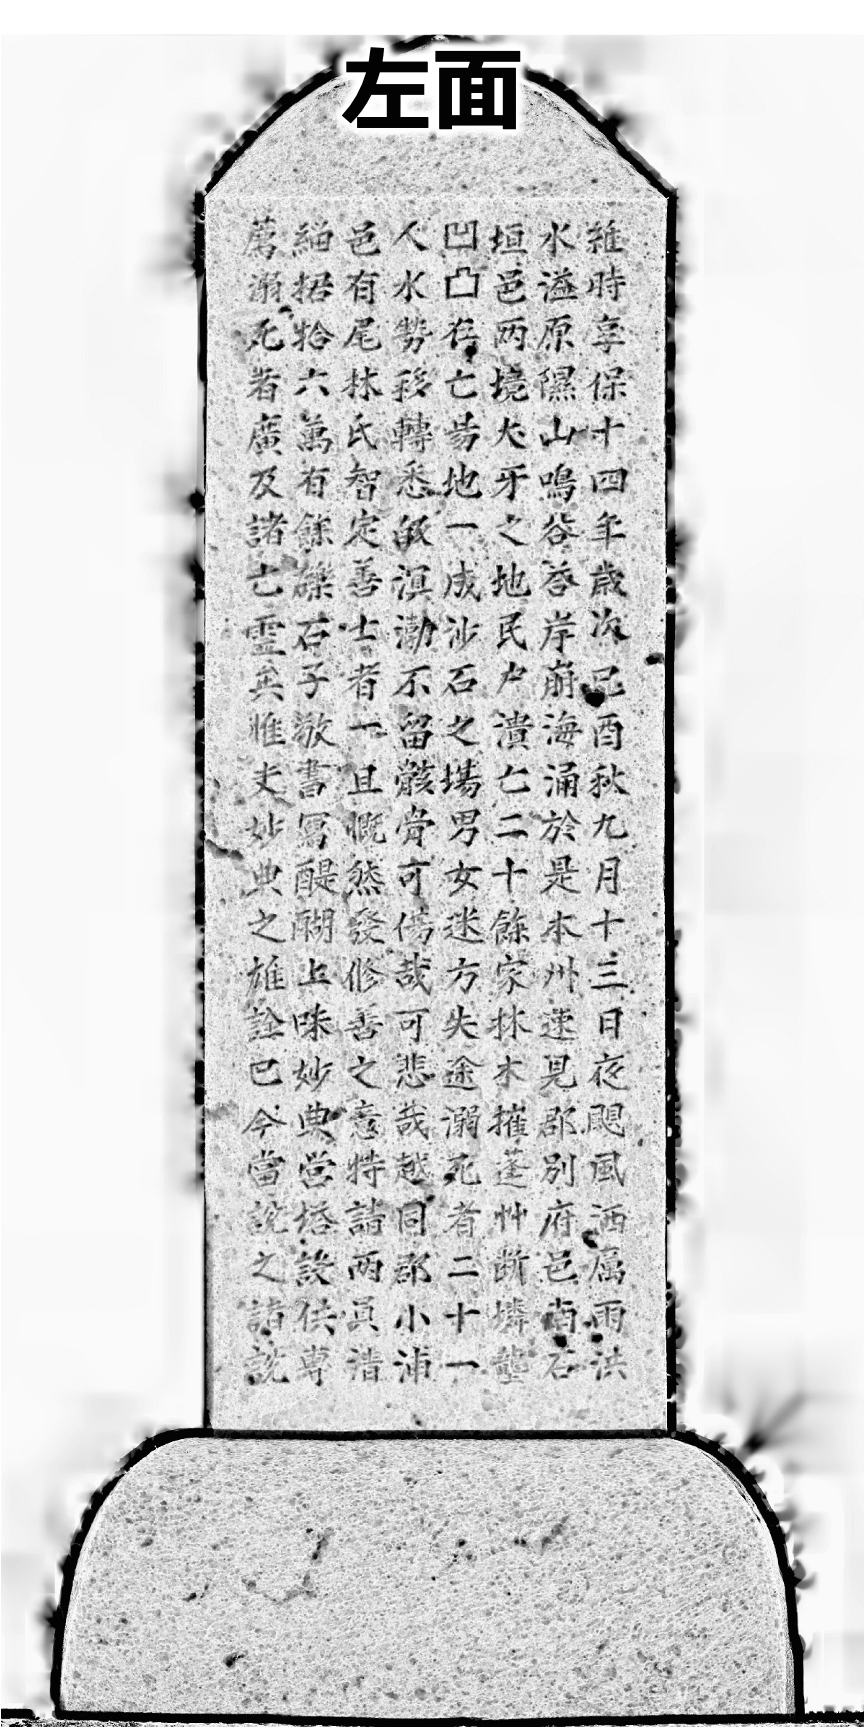 左面
維時享保十四年歳次己酉秋九月十三日夜颶風洒属雨洪
水溢原隰山鳴谷荅岸崩海涌於是本州速見郡別府邑南石
垣邑両境犬牙之地民戸潰亡二十餘家林木摧蓬艸断墳壟
凹凸存亡易地一成沙石之場男女迷方失途溺死者二十一
人水勢移轉悉皈溟渤不留骸骨可傷哉可悲哉越同郡小浦
邑有尾林氏智定善士者一旦慨然發修善之意特請両眞借
緇捃拾六萬有餘礫石子敬書冩醍醐上味妙典営塔設供専
薦溺死者廣及諸亡霊矣惟夫妙典之雄詮巴今當説之諸説